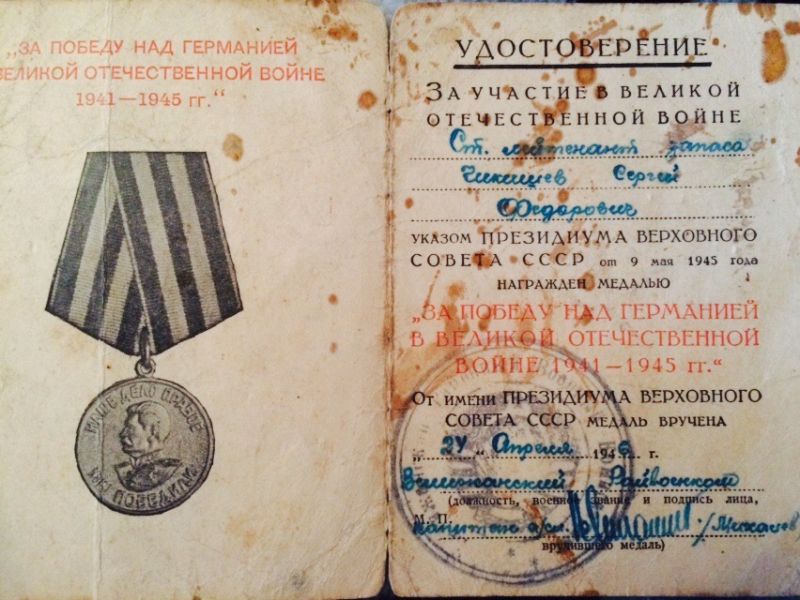 „ЗА ПОБЕДУ НАД ГЕРМАНИЕЙ
ВЕЛИКОЙ ОТЕЧЕСТВЕННОЙ ВОЙНЕ
1941—1945 гг.“
НАШЕ ДЕЛО ПРАВОЕ
МЫ ПОБЕДИЛИ
УДОСТОВЕРЕНИЕ
ЗА УЧАСТИЕ В ВЕЛИКОЙ
ОТЕЧЕСТВЕННОЙ ВОЙНЕ
Ст. лейтенант запаса
Чикишев Сергей
Федорович
УКАЗОМ ПРЕЗИДИУМА ВЕРХОВНОГО
СОВЕТА СССР от 9 мая 1945 года
НАГРАЖДЕН МЕДАЛЬЮ
„ЗА ПОБЕДУ НАД ГЕРМАНИЕЙ
В ВЕЛИКОЙ ОТЕЧЕСТВЕННОЙ
ВОЙНЕ 1941—1945 гг.“
ОТ ИМЕНИ ПРЕЗИДИУМА ВЕРХОВНОГО
СОВЕТА СССР МЕДАЛЬ ВРУЧЕНА
„24“ Апреля 1946 г.
Райвоенком
(должность, военное звание и подпись лица,
М. П.
капитан а/сл.
вручившего медаль)